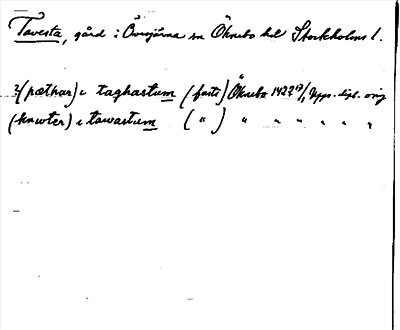 Tavesta, gård i Överjärna sn Öknebo hd Stockholms l.
?(pæthar) i taghastum (fasti) Öknebo 1422 17/1 Upps. dipl. orig
(knwter) i tawastum ( " ) " " " " " "